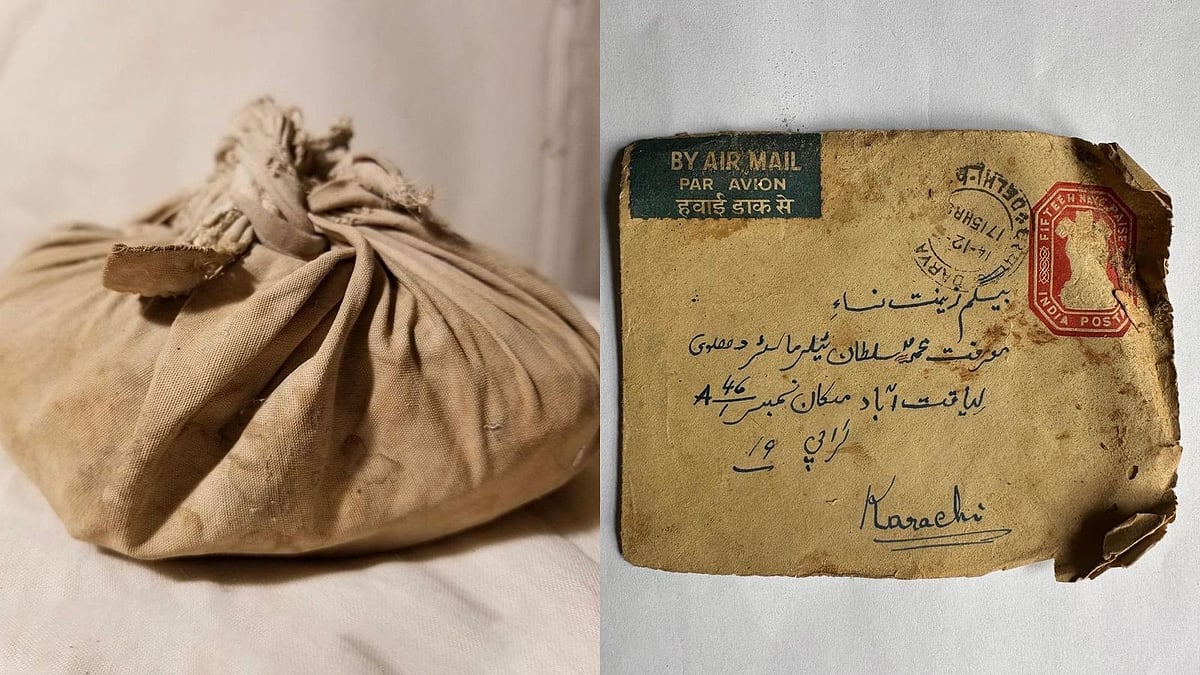 BY AIR MAIL
PAR AVION
हवाई डाक से
DELHI-6
17 15HRS
14-12
FIFTEEN NAYE PAISE
INDIA POST
بیگم زینت نساء
معرفت محمد سلطان ٹیلر ماسٹر دہلوی
لیاقت آباد مکان نمبر A 46/1
کراچی 19
Karachi